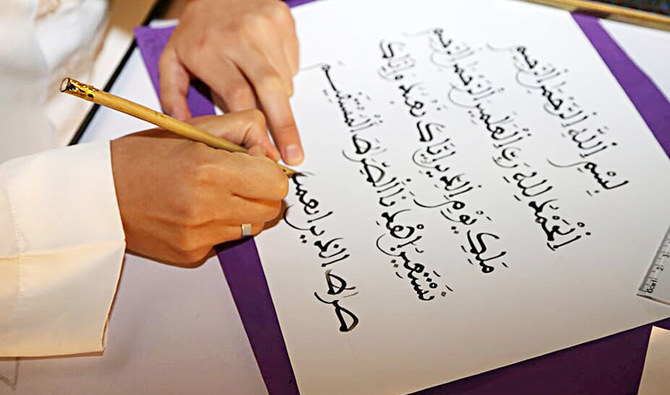 بِسْمِ اللَّهِ الرَّحْمَٰنِ الرَّحِيمِ
الْحَمْدُ لِلَّهِ رَبِّ الْعَٰلَمِينَ الرَّحْمَٰنِ الرَّحِيمِ
مَلِكِ يَوْمِ الدِّينِ إِيَّاكَ نَعْبُدُ وَإِيَّاكَ
نَسْتَعِينُ اهْدِنَا الصِّرَٰطَ الْمُسْتَقِيمَ
صرط الذين انعمت